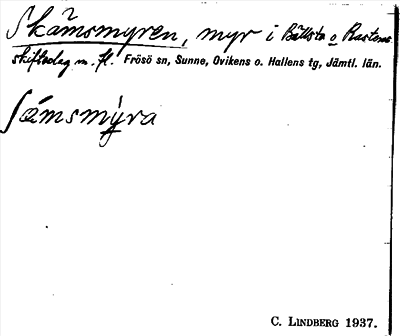 Skämsmyren, myr i Bällsta o Rustens
skiftslag m. fl. Frösö sn, Sunne, Ovikens o. Hallens tg, Jämtl. län.
ʃæ̀msmỳra
C. LINDBERG 1937.